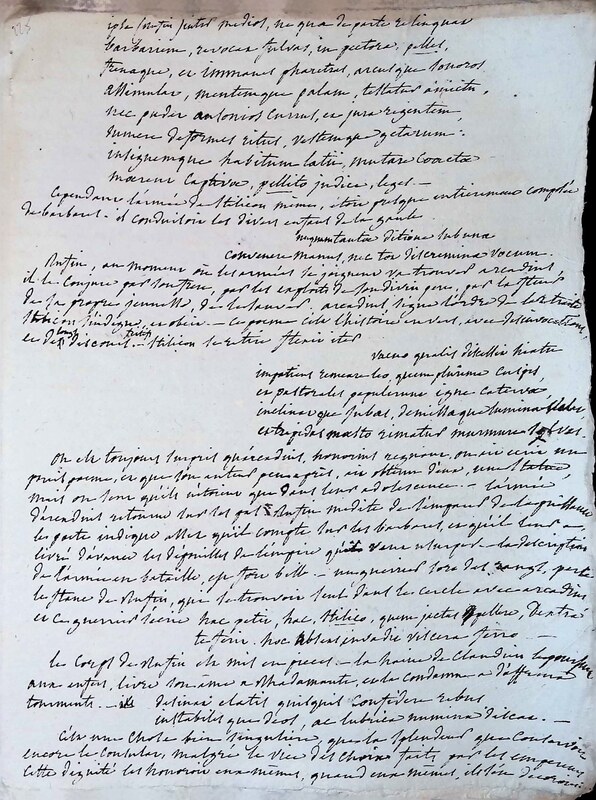 ipse inter medios, ne qua de parte relinquat
barbariem, revocat fulvas, in pectora, pelles,
frenaque, et immanes pharetras, arcusque sonoros
assimulat, mentemque palam, testatur amictu,
nec pudet ausonios currus, et jura regentem,
sumere deformes ritus, vestemque getarum:
insignemque habitum latii, mutare coacta
moerent captivae, pellito judice, leges. —
Cependant l'armée de Stilicon même, étoit presque entièrement composée
de barbares. il conduisoit les divers enfans de la gaule
nunquam tantae ditione sub una
convenere manus, nec tot discrimina vocum.
Rufin, au moment où les armées se joignent va trouver arcadius,
il le conjure par son frère, par les exploits de son divin père, par la fleur
de sa propre jeunesse, de le sauver — arcadius, signe l'ordre de la retraite
Stilicon s'indigne, et obéit. — ce poëme est l'histoire en vers, avec des invocations,
et de longs discours — Stilicon se retire
vacuo qualis discedit hiatu
impatiens remeare leo, quem plurima cuspis,
et pastorales pepulerunt igne catervae
inclinatque jubas, demissaque lumina
et trepidas maesto rimatur murmure sylvas.
On est toujours surpris qu'arcadius, honorius regnant, on ait écrit un
pareil poëme, et que son auteur peu après, ait obtenu d'eux, une statue,
mais on sent qu'ils n'étoient que dans leur adolescence. — l'armée
d'arcadius retourne sur ses pas Rufin médite de s'emparer de la puissance
le poëte indique assez qu'il compte sur les barbares, et qu'il leur a
livré d'avance les dépouilles de l'empire qu'il veut usurper — la description
de l'armée en bataille, est fort belle — un guerrier sort des rangs, perce
le flanc de Rufin, qui se trouvoit seul dans le cercle avec arcadius
et ce guerrier s'écrie hac petit, hac Stilico, quem jactas pellere, dextra
te ferit. hoc absens invadit viscera ferro —
le corps de Rufin est mis en pièces — la haine de Claudien le poursuit
aux enfers, livre son âme à Rhadamante, et la condamne à d'affreux
tourments. — desinat elatis quisquis confidere rebus
instabilesque deos, ac lubrica numina discat. —
C'est une chose bien singulière, que la splendeur que conservoit
encore le consulat, malgré le vice des choix faits par les empereurs
cette dignité les honoroit eux mêmes, quand eux mêmes, ils s'en décoroient